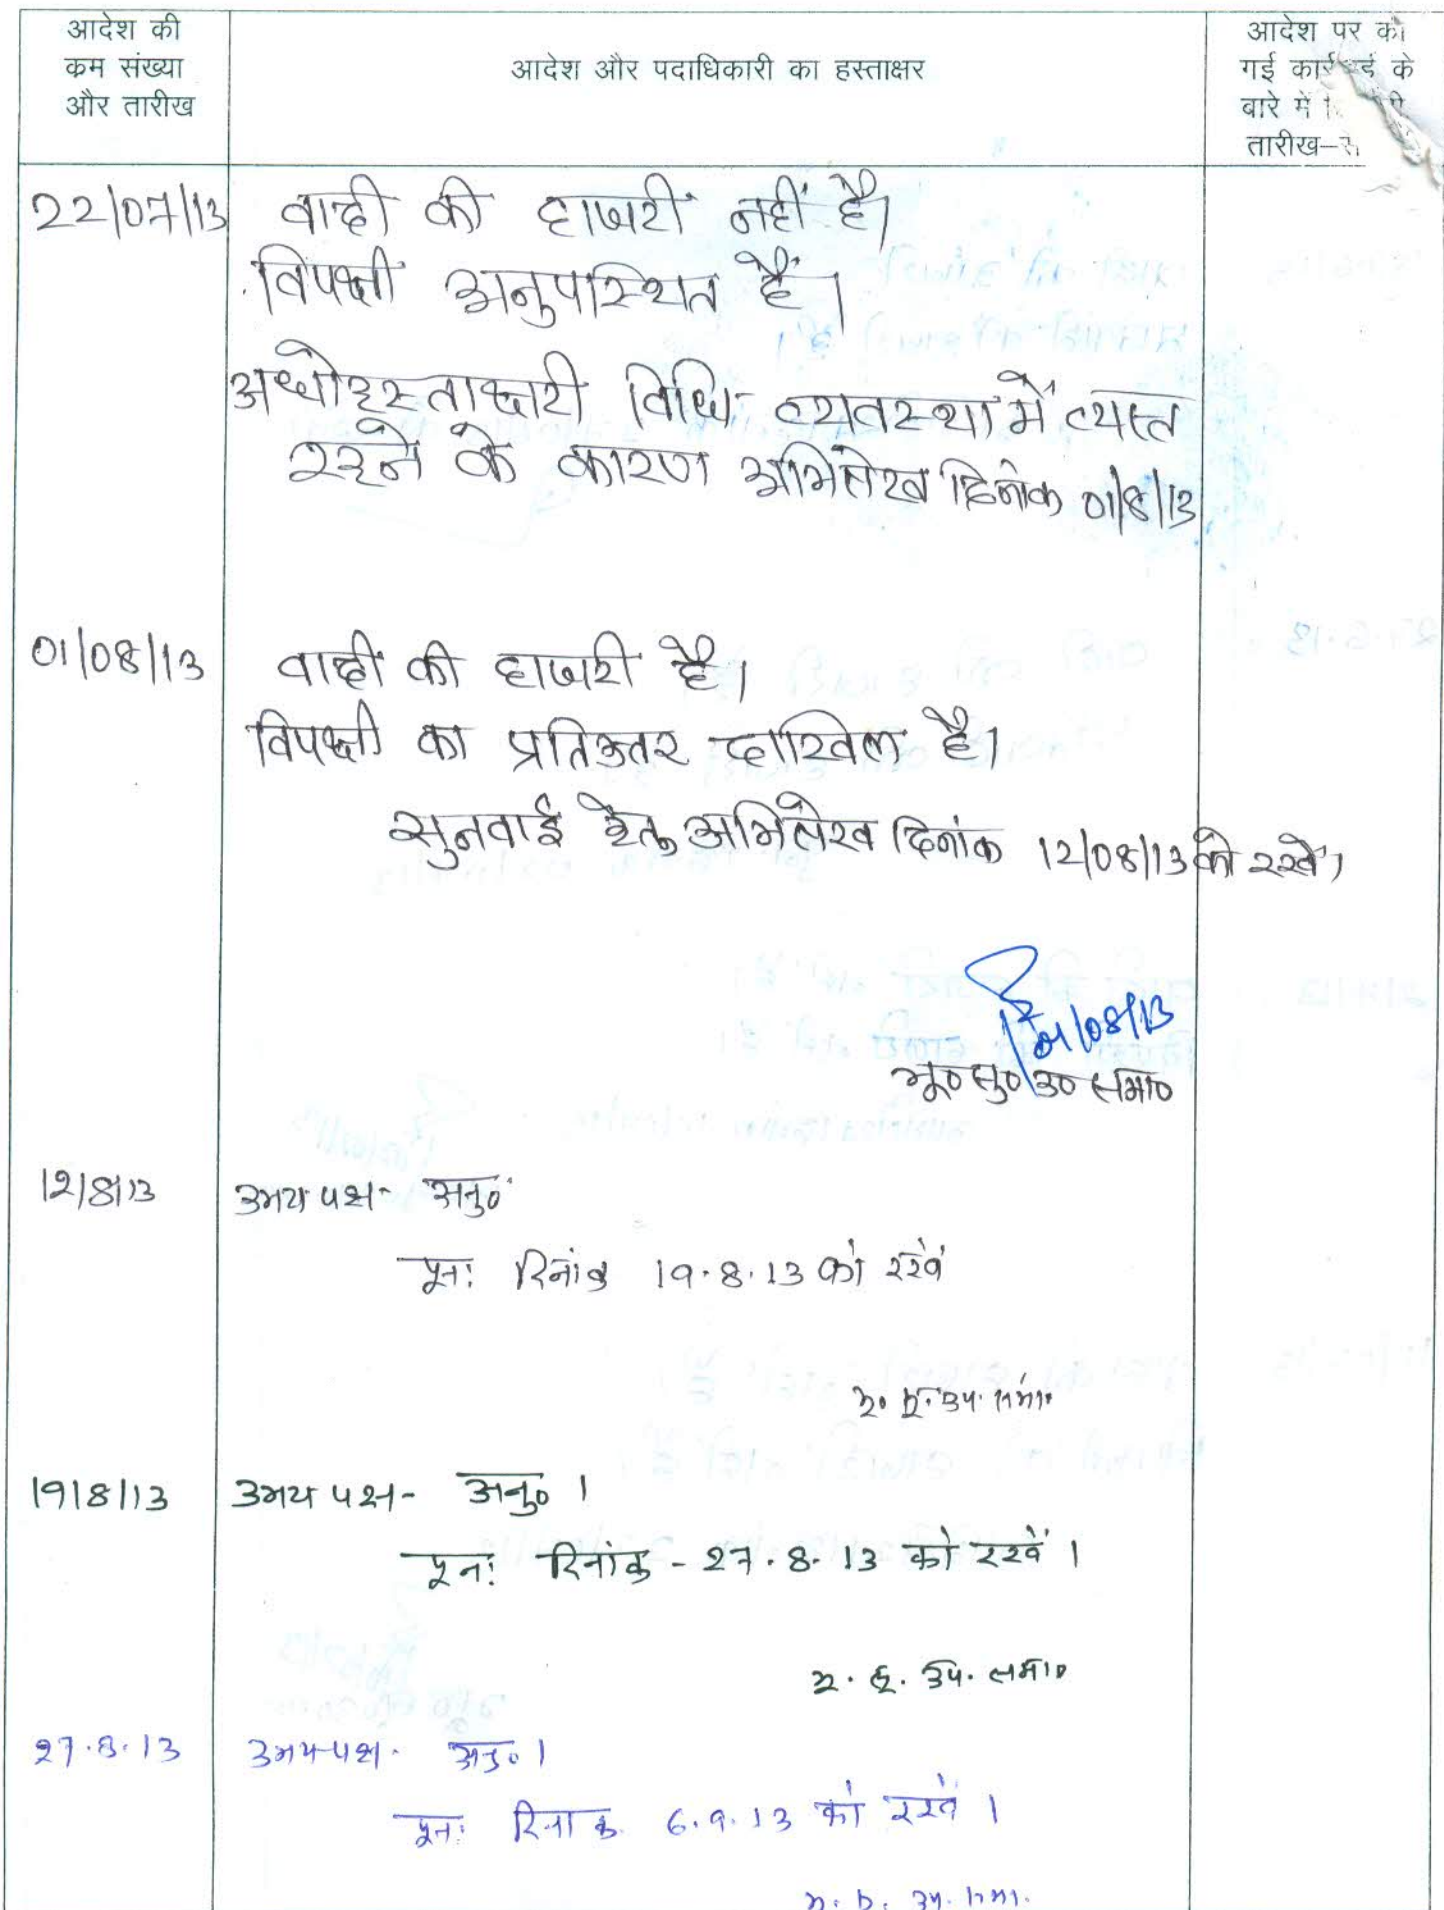 आदेश की
कम संख्या
और तारीख
आदेश और पदाधिकारी का हस्ताक्षर
आदेश पर की
गई के
बारे में
तारीख
22/07/13 वादी की हाजरी नहीं है।
विपक्षी अनुपस्थित हैं।
अधोहस्ताक्षरी विधि-व्यवस्था में व्यस्त
रहने के कारण अभिलेख दिनांक 01/8/13
01/08/13 वादी की हाजरी है।
विपक्षी का प्रतिउतर दाखिल है।
सुनवाई हेतु अभिलेख दिनांक 12/08/13 को रखें।
01/08/13
भू० सु० उ० समा०
12/8/13 उभय पक्ष- अनु०
पुन: दिनांक 19.8.13 को रखें
भू. सु. उप. समा०
19/8/13 उभय पक्ष- अनु० ।
पुन: दिनांक - 27.8.13 को रखें ।
भू. सु. उप. समा०
27.8.13 उभय पक्ष- अनु० ।
पुन: दिनांक 6.9.13 को रखें ।
भू. सु. उप. समा.